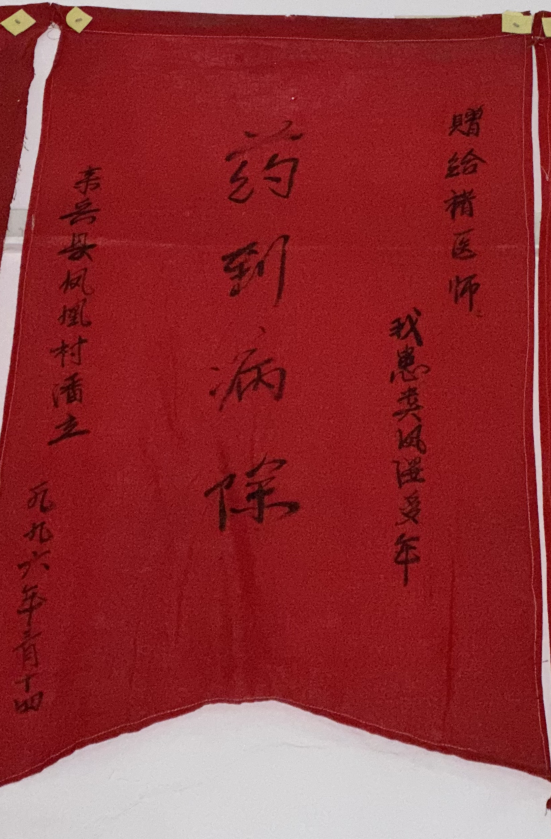 赠给褚医师
我患类风湿多年
药到病除
县凤凰村潘立
九九六年三月十四